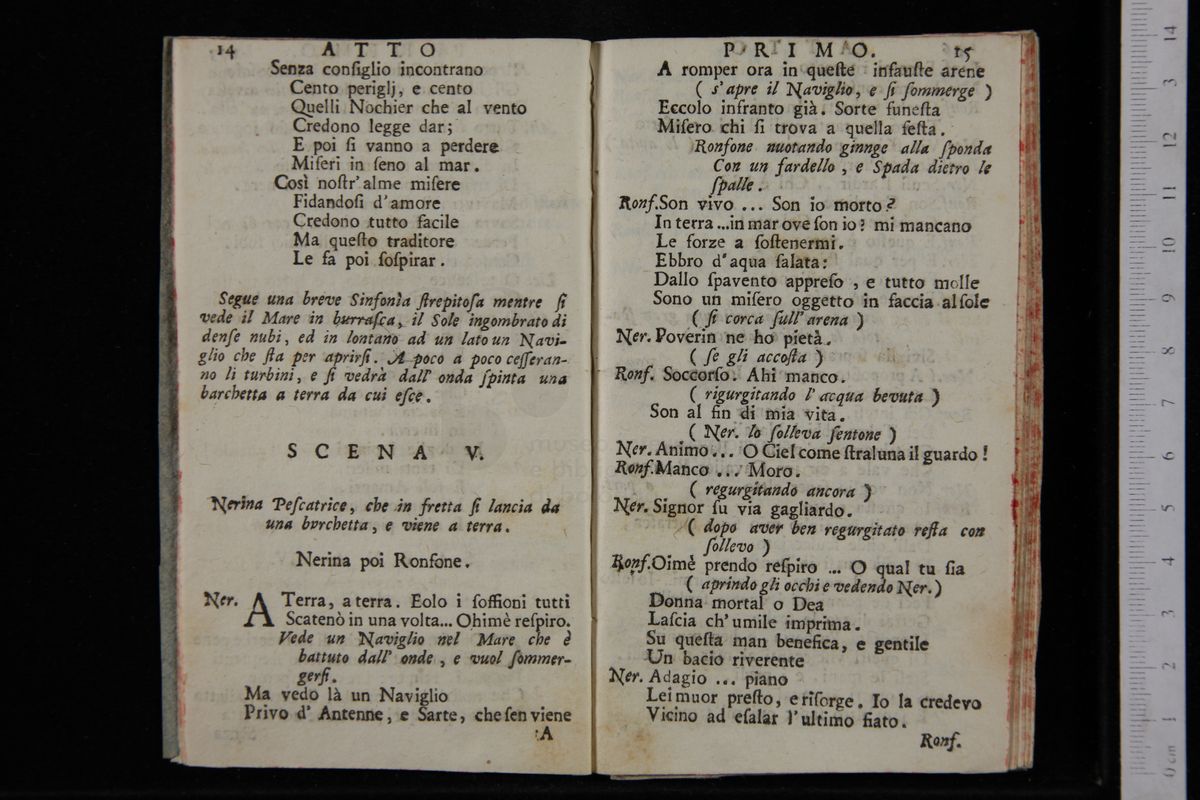 14 ATTO
Senza conſiglio incontrano
Cento periglj, e cento
Quelli Nochier che al vento
Credono legge dar;
E poi ſi vanno a perdere
Miſeri in ſeno al mar.
Così noſtr' alme miſere
Fidandoſi d'amore
Credono tutto facile
Ma queſto traditore
Le fa poi ſoſpirar.
Segue una breve Sinfonìa ſtrepitoſa mentre ſi
vede il Mare in burraſca, il Sole ingombrato di
denſe nubi, ed in lontano ad un lato un Navi-
glio che ſta per aprirſi. A poco a poco ceſſeran-
no li turbini, e ſi vedrà dall' onda ſpinta una
barchetta a terra da cui eſce.
SCENA V.
Nerina Peſcatrice, che in fretta ſi lancia da
una burchetta, e viene a terra.
Nerina poi Ronfone.
Ner. A Terra, a terra. Eolo i ſoffioni tutti
Scatenò in una volta... Ohimè reſpiro.
Vede un Naviglio nel Mare che è
battuto dall' onde, e vuol ſommer-
gerſi.
Ma vedo là un Naviglio
Privo d' Antenne, e Sarte, che ſen viene
A
PRIMO. 15
A romper ora in queſte infauſte arene
( s'apre il Naviglio, e ſi ſommerge )
Eccolo infranto già. Sorte funeſta
Miſero chi ſi trova a quella feſta.
(Ronfone nuotando ginnge alla ſponda
Con un fardello, e Spada dietro le
ſpalle.
Ronf. Son vivo ... Son io morto?
In terra ... in mar ove ſon io? mi mancano
Le forze a ſoſtenermi.
Ebbro d'aqua ſalata:
Dallo ſpavento appreſo, e tutto molle
Sono un miſero oggetto in faccia al ſole
( ſi corca ſull' arena )
Ner. Poverin ne ho pietà.
( ſe gli accoſta )
Ronf. Soccorſo. Ahi manco.
( rigurgitando l' acqua bevuta )
Son al fin di mia vita.
( Ner. lo ſolleva ſentone )
Ner. Animo... O Ciel come ſtraluna il guardo!
Ronf. Manco ... Moro.
( regurgitando ancora )
Ner. Signor ſu via gagliardo.
( dopo aver ben regurgitato reſta con
ſollevo )
Ronf. Oimè prendo reſpiro ... O qual tu ſia
( aprindo gli occhi e vedendo Ner.)
Donna mortal o Dea
Laſcia ch'umile imprima.
Su queſta man benefica, e gentile
Un bacio riverente
Ner. Adagio ... piano
Lei muor preſto, e riſorge. Io la credevo
Vicino ad eſalar l'ultimo fiato.
Ronf.
0 cm 1 2 3 4 5 6 7 8 9 10 11 12 13 14